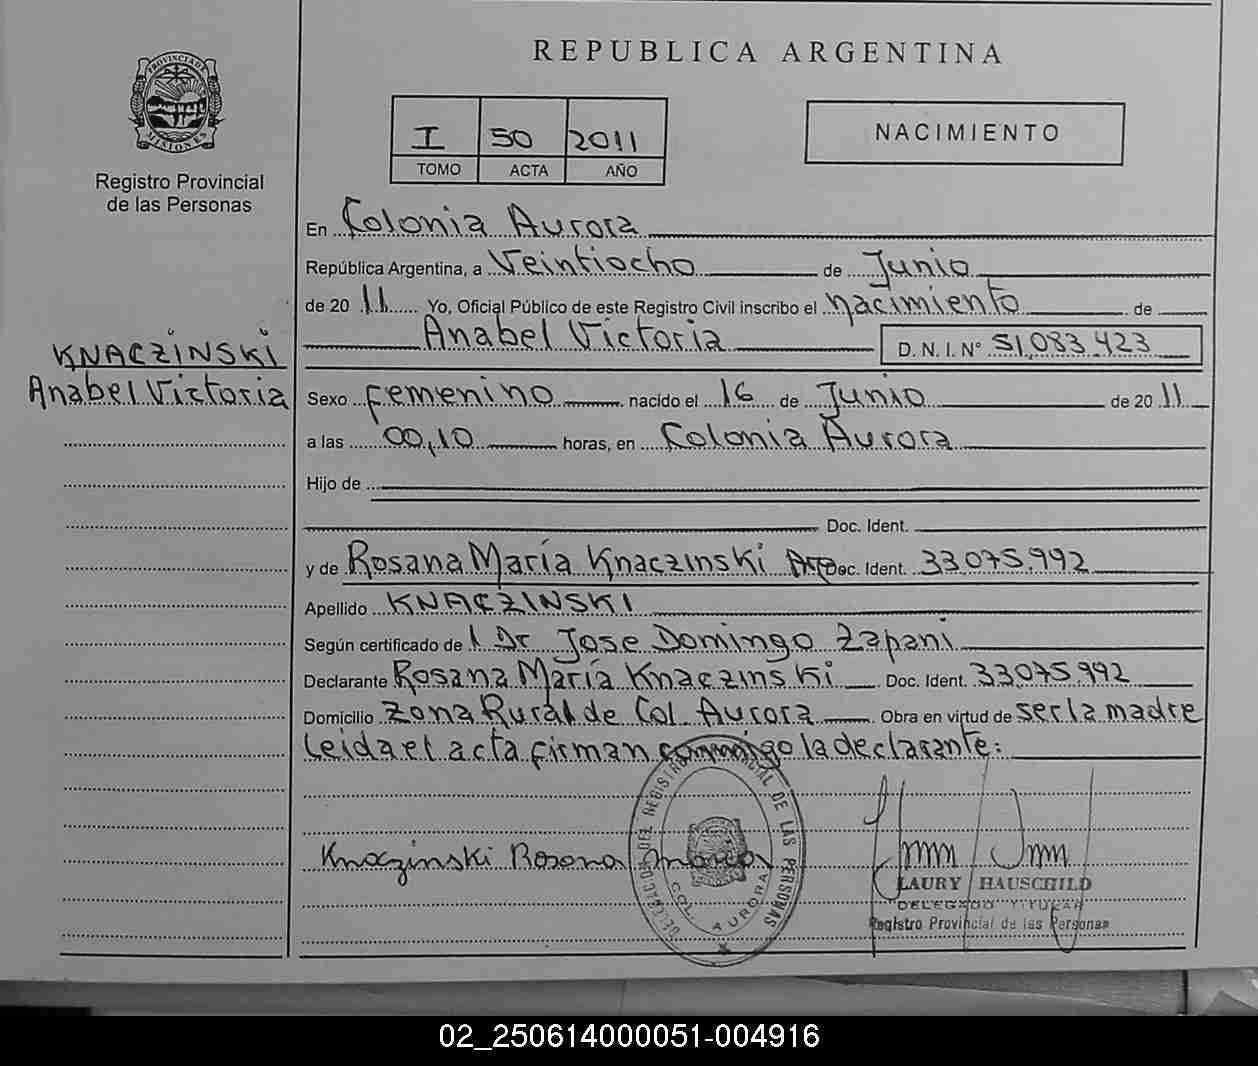 REPUBLICA ARGENTINA
PROVINCIA DE MISIONES
Registro Provincial
de las Personas
I 50 2011
TOMO ACTA AÑO
NACIMIENTO
KNACZINSKI
Anabel Victoria
En Colonia Aurora
República Argentina, a Veintiocho de Junio
de 20 11 Yo, Oficial Público de este Registro Civil inscribo el nacimiento de
Anabel Victoria D.N.I. N° 51.083.423
Sexo femenino nacido el 16 de Junio de 20 11
a las 00,10 horas, en Colonia Aurora
Hijo de
Doc. Ident.
y de Rosana María Knaczinski Doc. Ident. 33.075.992
Apellido KNACZINSKI
Según certificado de l Dr Jose Domingo Zapani
Declarante Rosana María Knaczinski Doc. Ident. 33.075.992
Domicilio Zona Rural de Col. Aurora Obra en virtud de ser la madre
leida el acta firman conmigo la declarante:
Knaczinski Rosana Maria
DELEGACION DEL REGISTRO PROVINCIAL DE LAS PERSONAS
COL. AURORA
LAURY HAUSCHILD
DELEGADO TITULAR
Registro Provincial de las Personas
02_250614000051-004916